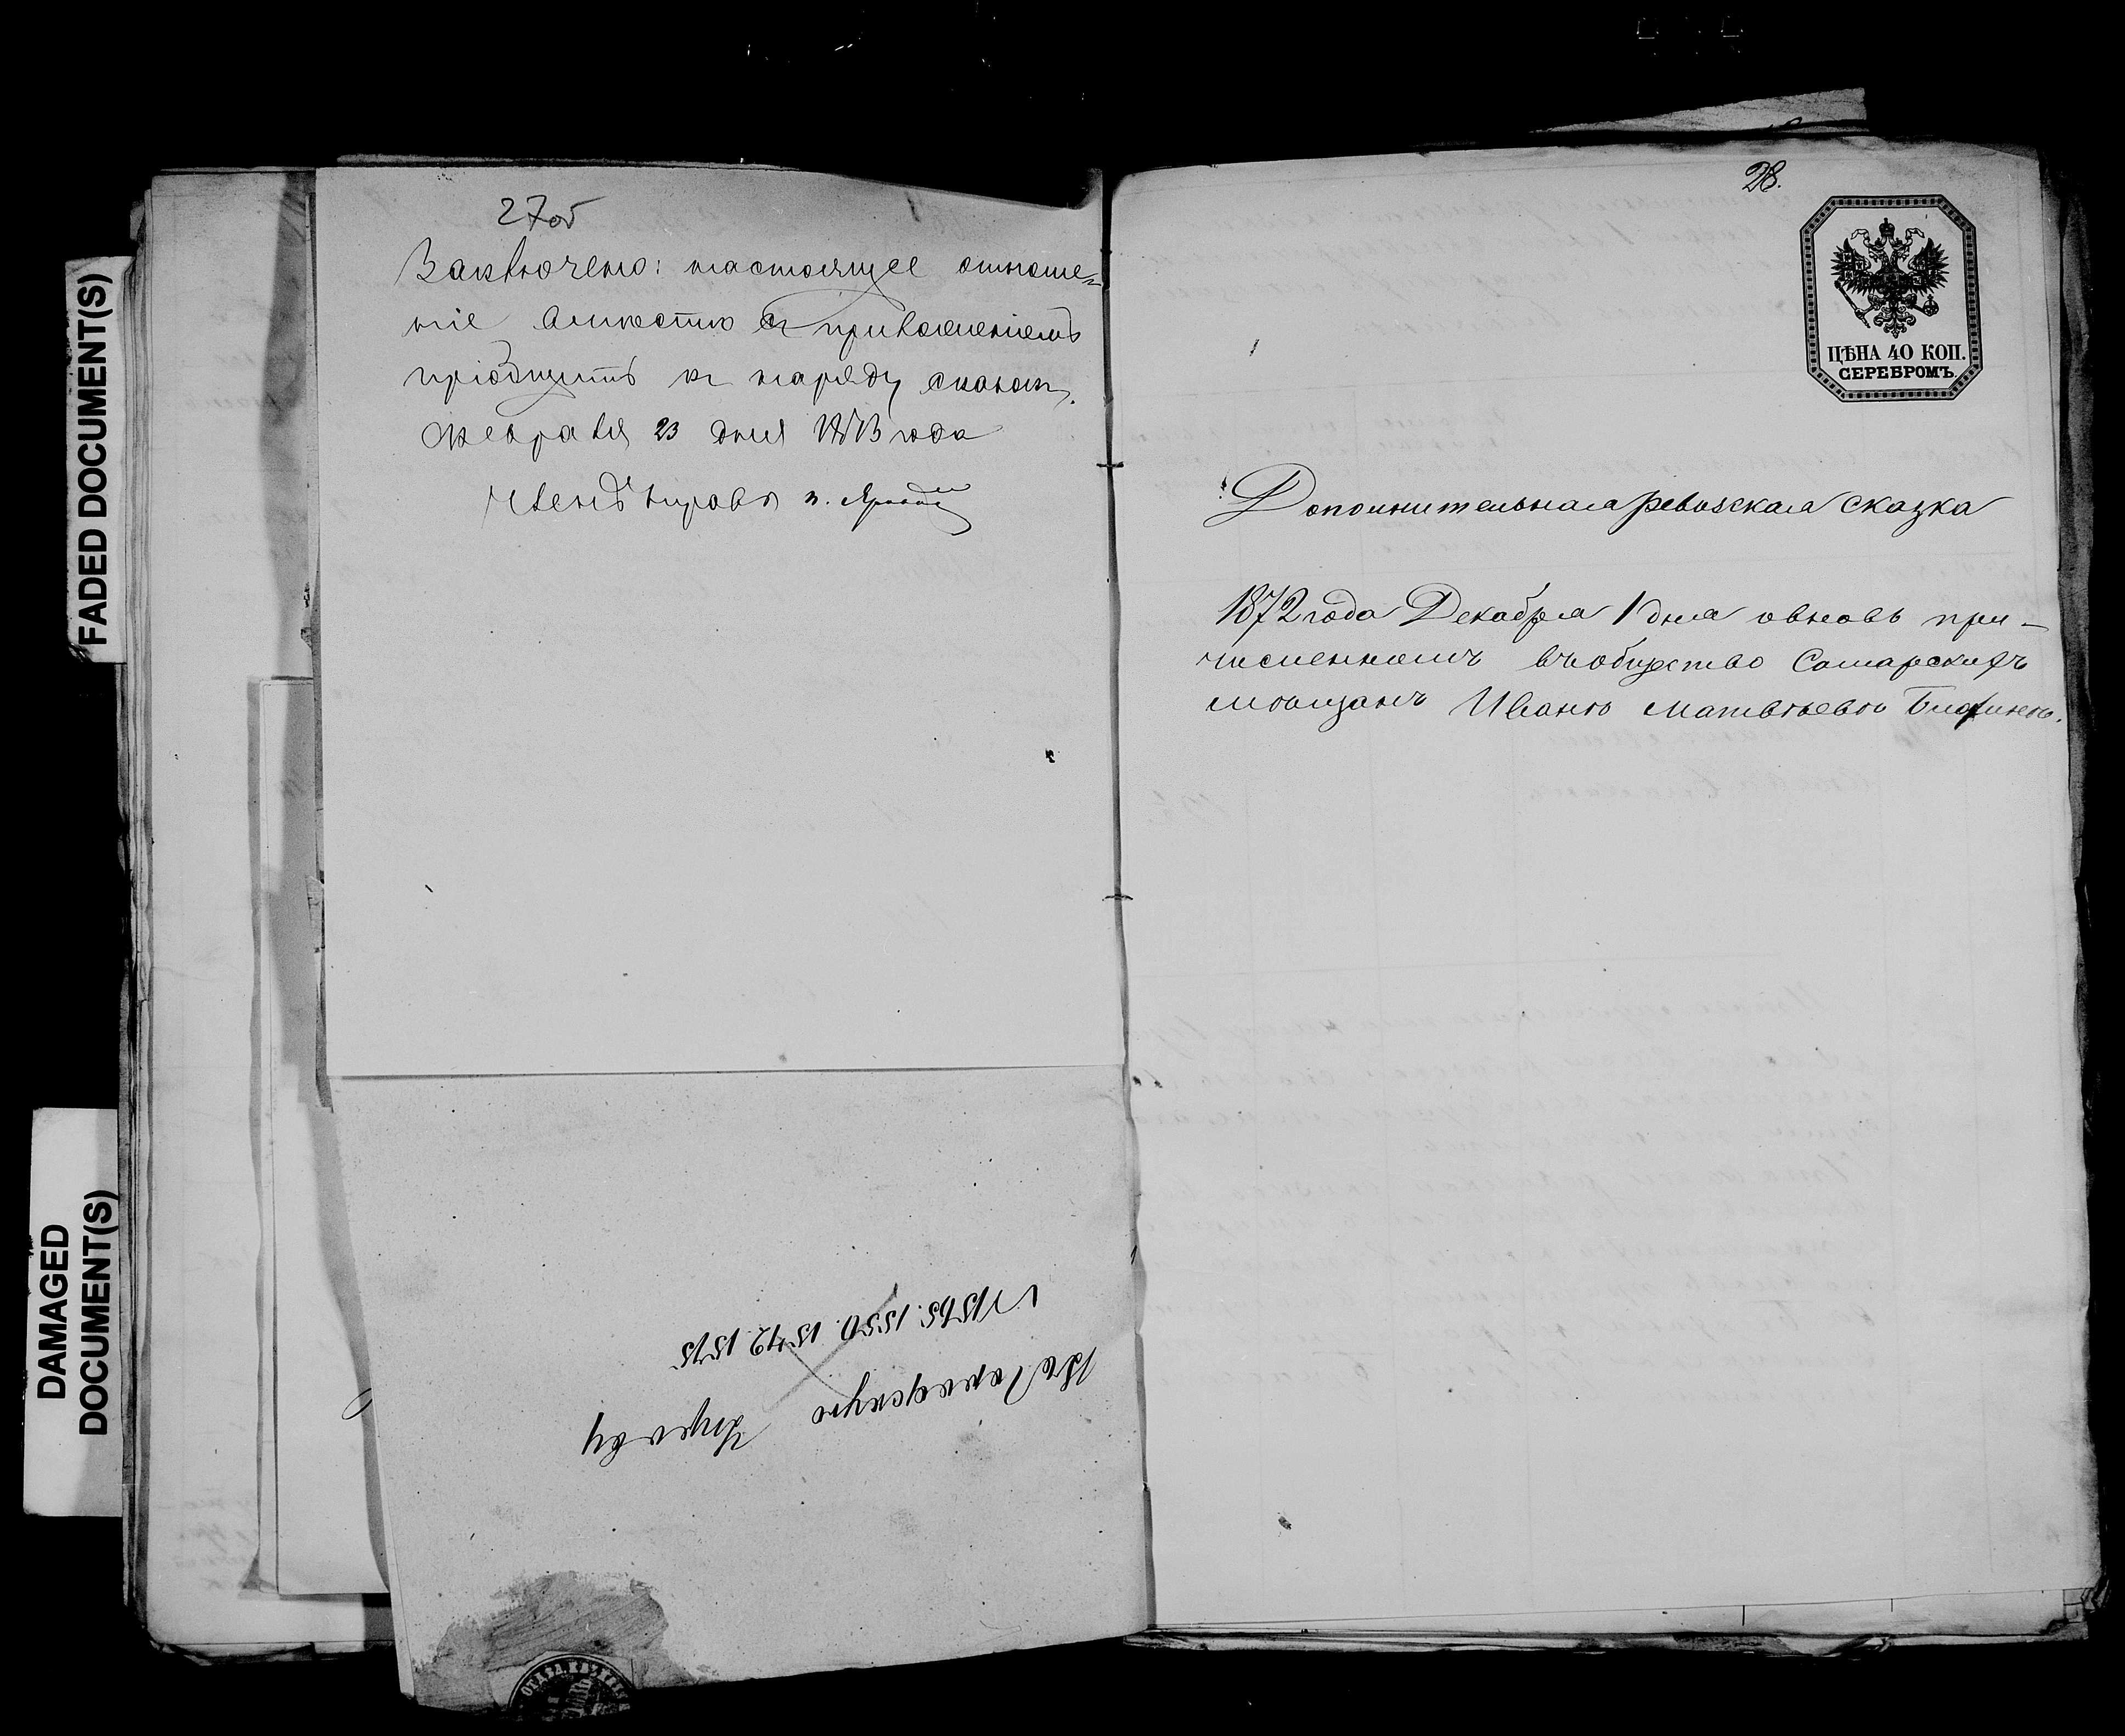 FADED DOCUMENT(S)
DAMAGED
DOCUMENT(S)
27об
Заключено: настоящее отноше=
ніе вместе съ приложеніемъ
пріобщить къ наряду сказокъ.
Февраля 23 дня 1873 года
Членъ Управы
1550. 1572. 1575
Въ Городскую Управу
28.
ЦѢНА 40 КОП.
СЕРЕБРОМЪ.
Дополнительная ревизская сказка
1872 года Декабря 1 дня о вновь при-
численномъ въ общество Самарскихъ
мѣщанъ Иванѣ Матвѣевѣ